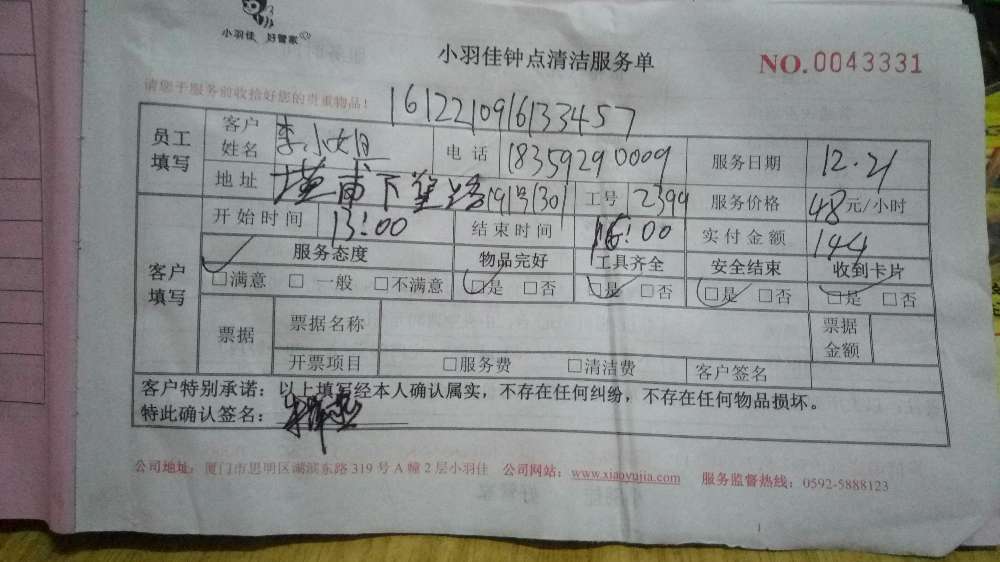 小羽佳 好管家
小羽佳钟点清洁服务单
NO.0043331
请您于服务前收拾好您的贵重物品！
161221091633457
员工填写
客户姓名 李小姐 电话 18359290009 服务日期 12.21
地址 下 路191号301 工号 2399 服务价格 48元/小时
客户填写
开始时间 13:00 结束时间 16:00 实付金额 144
服务态度 物品完好 工具齐全 安全结束 收到卡片
□满意 □一般 □不满意 □是 □否 □是 □否 □是 □否 □是 □否
票据 票据名称 票据金额
开票项目 □服务费 □清洁费 客户签名
客户特别承诺：以上填写经本人确认属实，不存在任何纠纷，不存在任何物品损坏。
特此确认签名：
公司地址：厦门市思明区湖滨东路319号A幢2层小羽佳 公司网站：www.xiaoyujia.com 服务监督热线：0592-5888123